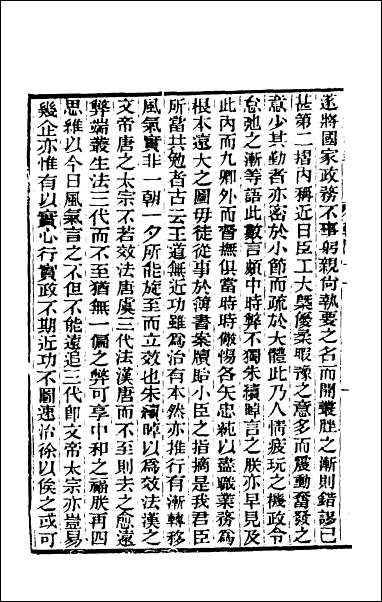 遂將國家政務不事躬親尚執要之名而開叢脞之漸則錯謬已
甚第二摺內稱近日臣工大槩優柔暇豫之意多而震動奮發之
意少其勤者亦密於小節而疏於大體此乃人情疲玩之機政令
怠弛之漸等語此數言頗中時弊不獨朱續晫言之朕亦早見及
此內而九卿外而督撫俱當時時儆惕各矢忠純以盡職業務為
根本遠大之圖毋徒從事於簿書案牘貽小臣之指摘是我君臣
所當共勉者古云王道無近功雖為治有本然亦推行有漸轉移
風氣實非一朝一夕所能旋至而立效也朱續晫以為效法漢之
文帝唐之太宗不若效法唐虞三代法漢唐而不至則去之愈遠
弊端叢生法三代而不至猶無一偏之弊可享中和之福朕再四
思維以今日風氣言之不但不能遠追三代卽文帝太宗亦豈易
幾企亦惟有以實心行實政不期近功不圖速治徐以俟之或可